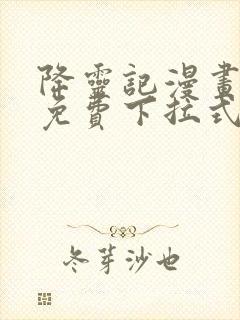 降靈記漫畫
免費下拉式
冬芽沙也